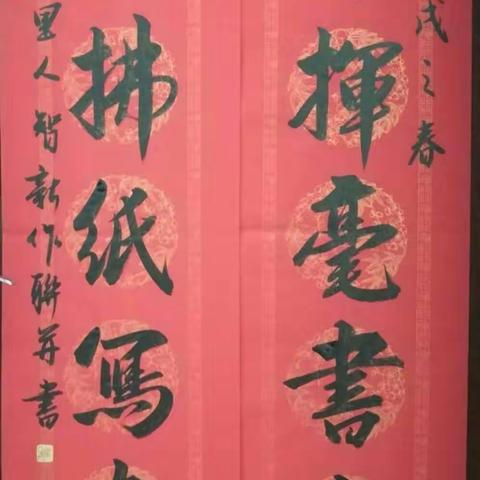 戊之春
揮毫書
拂紙寫
里人智新作聯并書